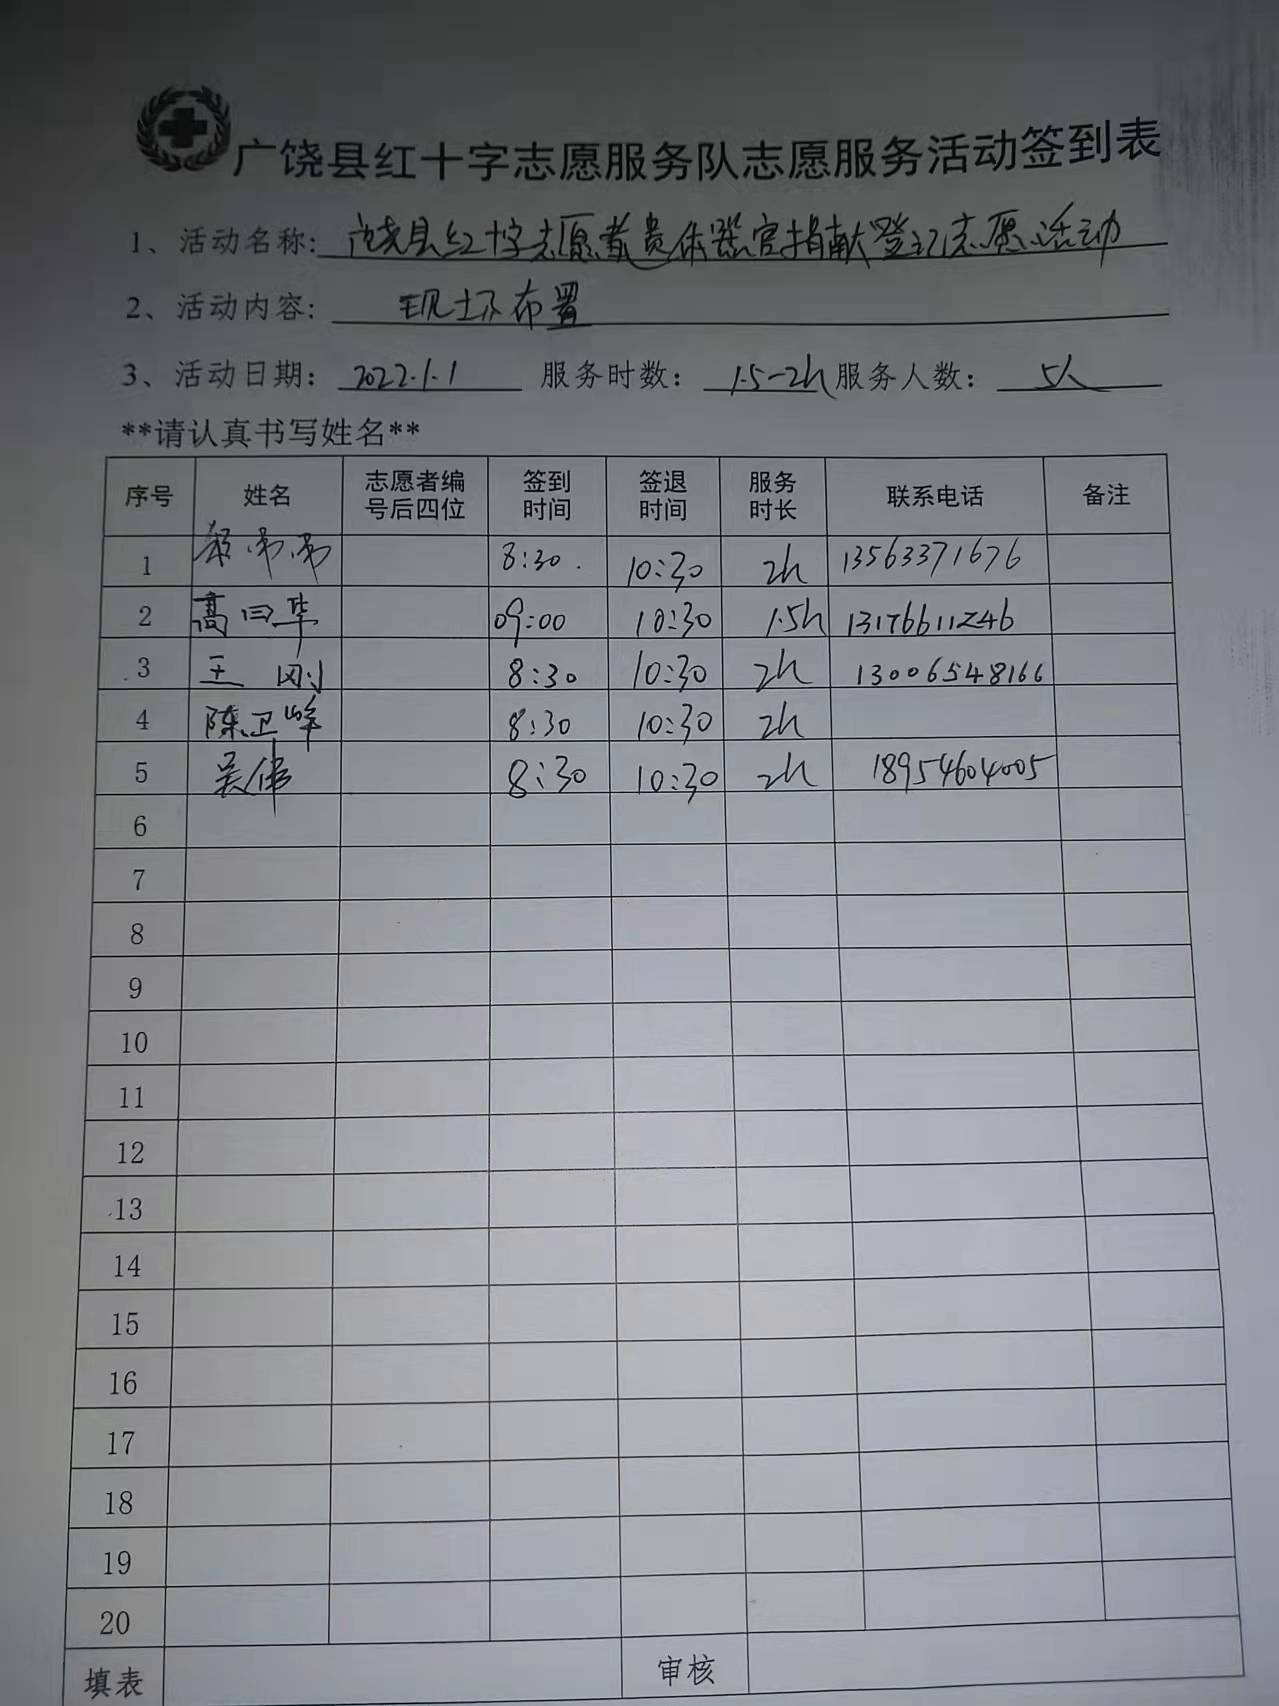 广饶县红十字志愿服务队志愿服务活动签到表
1、活动名称: 广饶县红十字志愿者遗体器官捐献登记志愿活动
2、活动内容: 现场布置
3、活动日期: 2022.1.1 服务时数: 1.5-2h 服务人数: 5人
**请认真书写姓名**
序号 姓名 志愿者编号后四位 签到时间 签退时间 服务时长 联系电话 备注
1 8:30 10:30 2h 13563371676
2 高曰华 09:00 10:30 1.5h 13176611246
3 王刚 8:30 10:30 2h 13006548166
4 陈卫峰 8:30 10:30 2h
5 吴伟 8:30 10:30 2h 18954604005
6
7
8
9
10
11
12
13
14
15
16
17
18
19
20
填表 审核